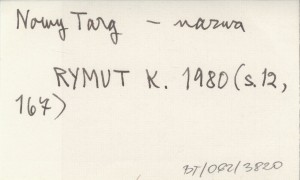 Nowy Targ - nazwa
RYMUT K. 1980 (s. 12,
167)
BT/062/3820